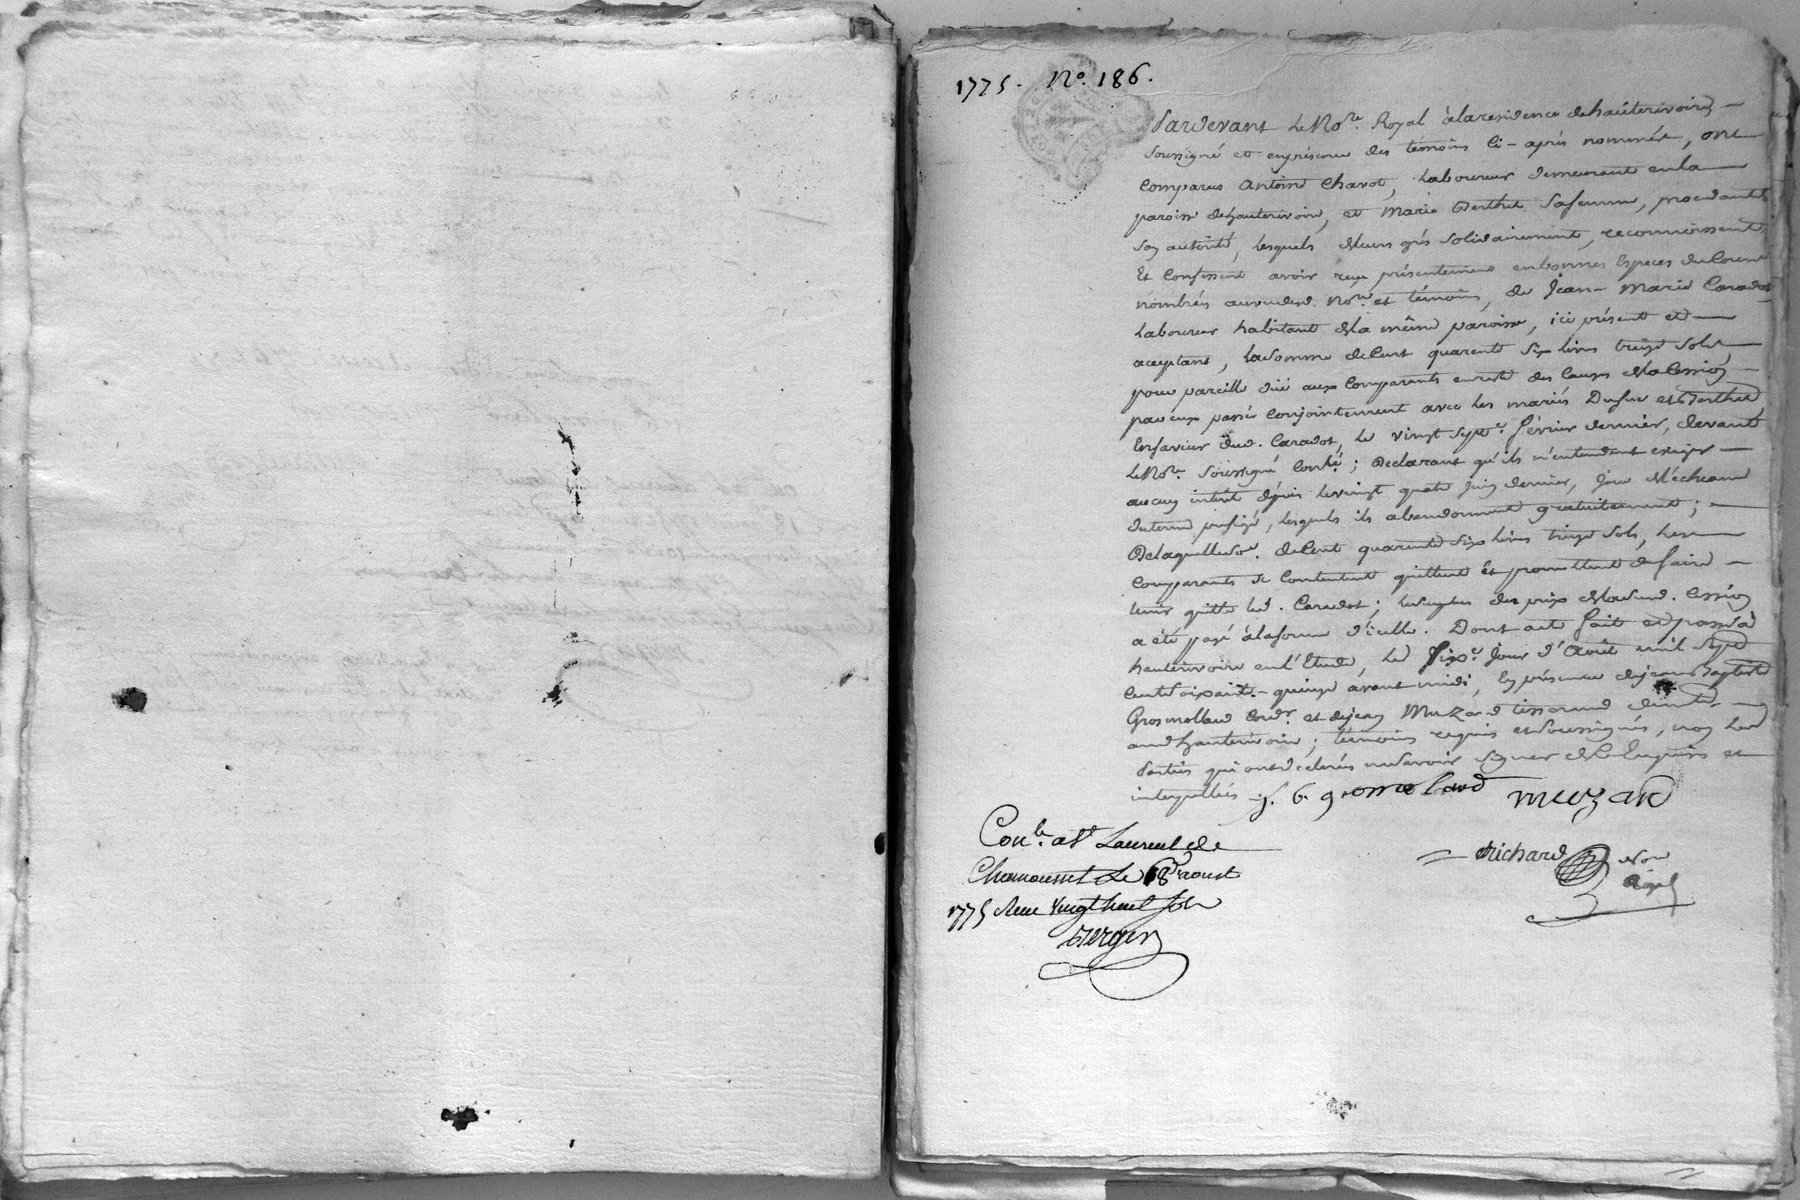 1775. No. 186.
Pardevant Le No.re Royal à la residence de hauterivoire
soussigné et en présence des témoins ci-après nommés, ont
comparus Antoine Chavot, Laboureur demeurant en la
paroisse de hauterivoire, et Marie Berthet sa femme, procedante de
son autorité, lesquels de leurs grés solidairement, reconnoissent
Et Confessent avoir reçu présentement en bonnes Especes du Cours
nombrés au vu dud. No.re et témoins, de Jean-Marie Caradot
Laboureur habitant de la même paroisse, ici présent et
aceptant, la somme de Cent quarente six livres treize sols,
pour pareille düe aux Comparants en reste des Causes de la Cession
par eux passée conjointement avec les mariés Dufuc et Berthet
En faveur dud. Caradot, le vingt sept.e février dernier, devant
Le No.re soussigné Conlé; Declarant qu'ils n'entendent exiger
aucun intérêt depuis le vingt quatre juin dernier, jour de l'écheance
du terme prefixé, lesquels ils abandonnent gratuitement;
De laquelle so.e de Cent quarente six livres treize sols, les
comparants se contentent quittent et promettent de faire
tenir quitte led. Caradot; le surplus du prix de lad. Cession
a été payé à la forme d'icelle. Dont acte fait et passé à
hauterivoire en l'Etude, Le Six.e jour d'Août mil sept
Cent soixante-quinze avant midi, En présence de jean Baptiste
Grosmollard Cord.r et de jean Muzard tisserand demeur.t
aud hauterivoire; témoins requis et soussignés, non les
Parties qui ont déclarés ne savoir signer de ce Enquises et
interpellées j. b. grosmolard muzard
Con.lé a S.t Laurent de
Chamousset Le 18 aoust
1775 Reçu Vingt huit sols
Berger
Richard No.re
Royal